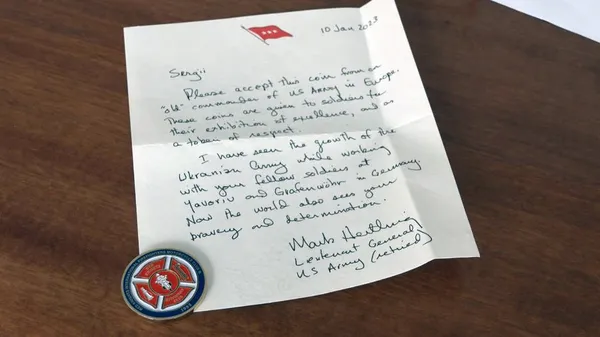 10 Jan 2023
Sergii
Please accept this coin from an
"old" commander of US Army in Europe.
These coins are given to soldiers for
their exhibition of excellence, and as
a token of respect.
I have seen the growth of the
Ukranian Army while working
with your fellow soldiers at
Yavoriv and Grafenwöhr in Germany
Now the world also sees your
bravery and determination.
Mark Hertling
Lieutenant General
US Army (retired)